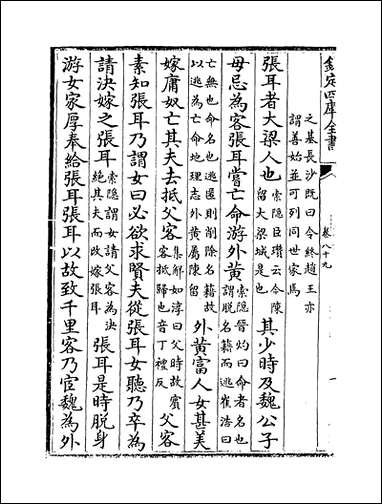 欽定四庫全書
卷八十九
之基長沙既曰令終趙王亦
謂善始並可列同世家焉
張耳者大梁人也
索隱臣瓚云今陳
留大梁城是也
其少時及魏公子
毋忌為客張耳嘗亡命游外黄
索隱晉灼曰命者名也
謂脱名籍而逃崔浩曰
亡無也命名也逃匿則削除名籍故
以逃為亡命地理志外黄屬陳留
外黄富人女甚美
嫁庸奴亡其夫去抵父客
集解如淳曰父時故賓
客抵歸也音丁禮反
父客
素知張耳乃謂女曰必欲求賢夫從張耳女聽乃卒為
請決嫁之張耳
索隱謂女請父客為決
絶其夫而改嫁張耳
張耳是時脱身
游女家厚奉給張耳張耳以故致千里客乃宦魏為外